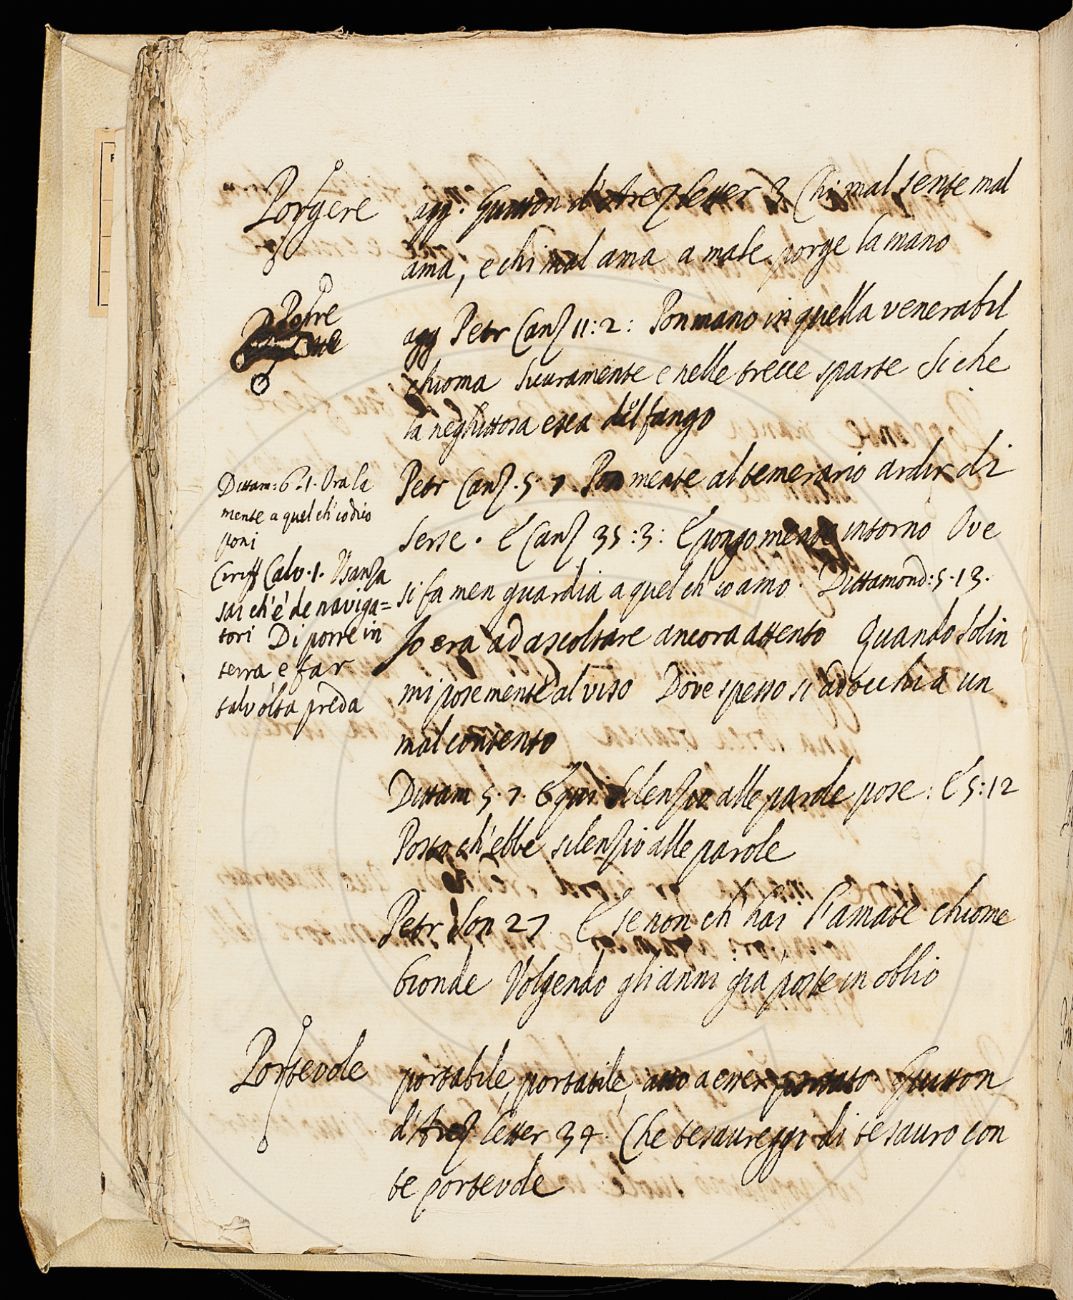 Porgere agg. Guitton d'Arez letter 3 Chi mal sente mal
ama, e chi mal ama a male porge la mano
Porre
agg Petr Canz 11:2: Pon mano in quella venerabil
chioma Sicuramente e nelle trecce sparte Si che
la neghittosa esca del fango
Petr Canz. 5. 7. Pon mente al temerario ardir di
Serse. E Canz 35:3: E pongo mente intorno Ove
si fa men guardia a quel ch'io amo. Dittamond: 5. 13.
Io era ad ascoltare ancora attento Quando Solin
mi pose mente al viso Dove spesso si adocchia un
mal contento
Dittam 5. 7. E qui silenzio alle parole pose: E 5:12
Posto ch'ebbe silenzio alle parole
Petr Son 27 E se non ch' hai l'amate chiome
bionde Volgendo gli anni gia poste in oblio
Dittam: 6. 1. Ora la
mente a quel ch'io dico
poni
Ciriff Calv. 1. Usanza
sai ch'e' de naviga=
tori Di porre in
terra e far
talvolta preda
Portevole portabile, portatile, atto a esser portato Guitton
d'Arez letter 34. Che tesaureggi di tesauro con
te portevole